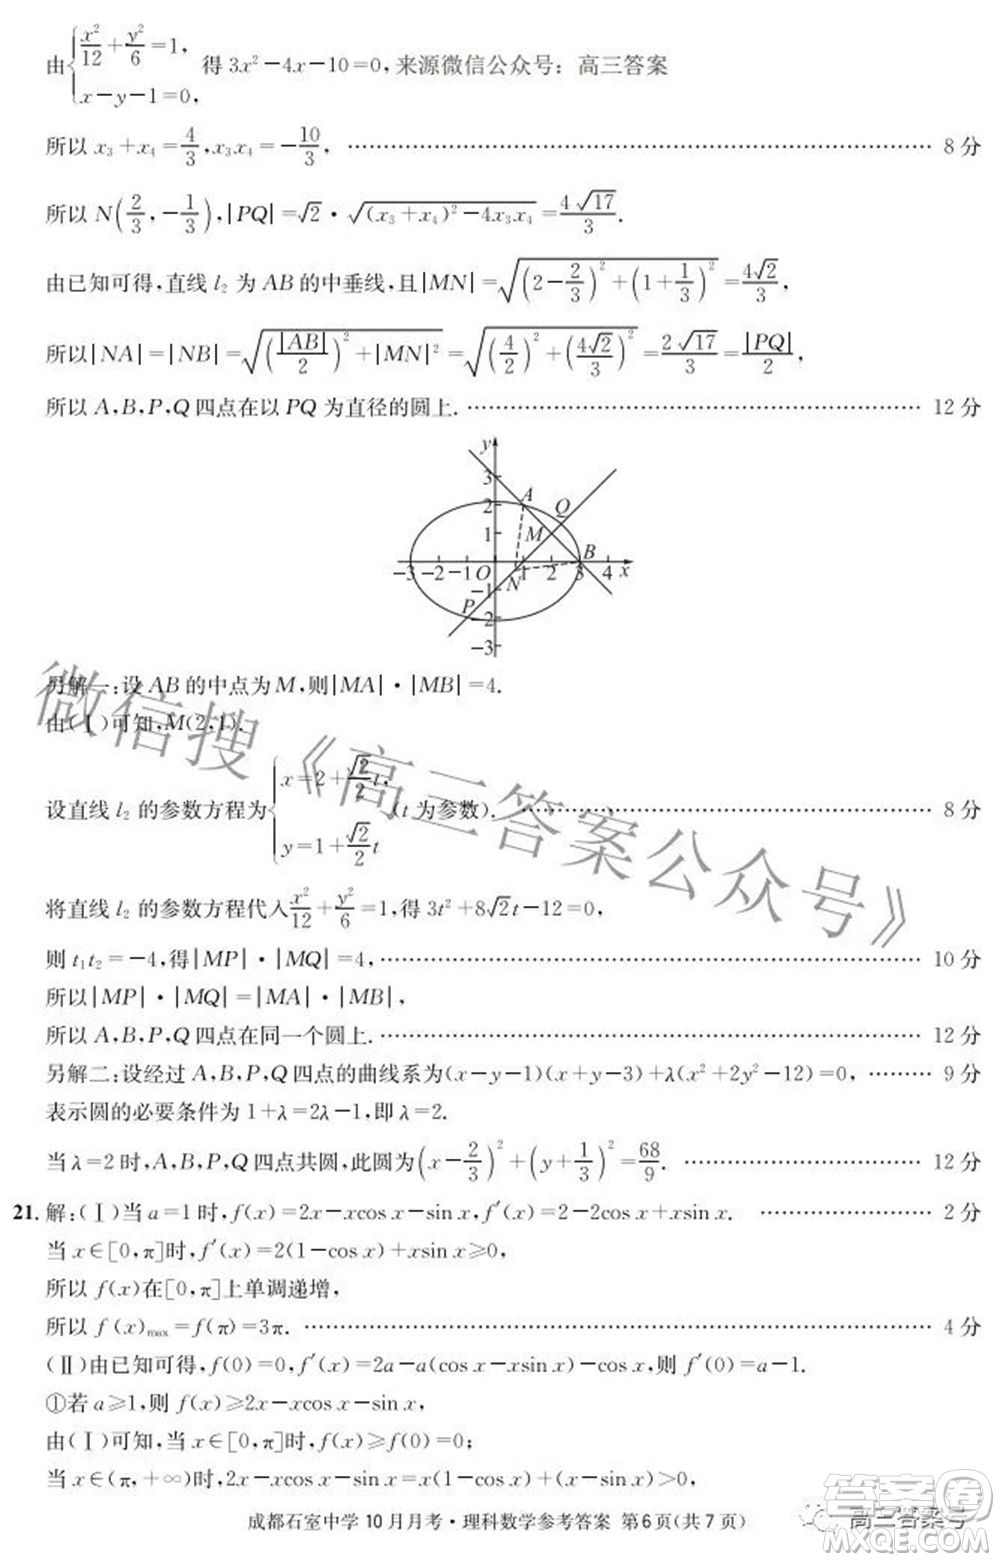 由{x²/12+y²/6=1, x-y-1=0, 得 3x²-4x-10=0, 来源微信公众号：高三答案
所以 x₃+x₄=4/3, x₃x₄=-10/3, …… 8 分
所以 N(2/3, -1/3), |PQ|=√2·√((x₃+x₄)²-4x₃x₄)=4√17/3.
由已知可得,直线 l₂ 为 AB 的中垂线,且|MN|=√((2-2/3)²+(1+1/3)²)=4√2/3,
所以|NA|=|NB|=√((|AB|/2)²+|MN|²)=√((4/2)²+(4√2/3)²)=2√17/3=|PQ|/2,
所以 A,B,P,Q 四点在以 PQ 为直径的圆上. …… 12 分
y
3
2 A Q
1 M
-3 -2 -1 O 1 2 3 4 x B
-1 N
P -2
-3
另解一:设 AB 的中点为 M,则|MA|·|MB|=4.
由(Ⅰ)可知,M(2,1).
设直线 l₂ 的参数方程为{x=2+√2/2 t, y=1+√2/2 t (t 为参数). …… 8 分
将直线 l₂ 的参数方程代入x²/12+y²/6=1,得 3t²+8√2t-12=0,
则 t₁t₂=-4,得|MP|·|MQ|=4, …… 10 分
所以|MP|·|MQ|=|MA|·|MB|,
所以 A,B,P,Q 四点在同一个圆上. …… 12 分
另解二:设经过 A,B,P,Q 四点的曲线系为(x-y-1)(x+y-3)+λ(x²+2y²-12)=0, …… 9 分
表示圆的必要条件为 1+λ=2λ-1,即 λ=2.
当 λ=2 时,A,B,P,Q 四点共圆,此圆为(x-2/3)²+(y+1/3)²=68/9. …… 12 分
21. 解:(Ⅰ)当 a=1 时,f(x)=2x-xcos x-sin x,f′(x)=2-2cos x+xsin x. …… 2 分
当 x∈[0,π]时,f′(x)=2(1-cos x)+xsin x≥0,
所以 f(x)在[0,π]上单调递增,
所以 f(x)max=f(π)=3π. …… 4 分
(Ⅱ)由已知可得,f(0)=0,f′(x)=2a-a(cos x-xsin x)-cos x,则 f′(0)=a-1.
①若 a≥1,则 f(x)≥2x-xcos x-sin x,
由(Ⅰ)可知,当 x∈[0,π]时,f(x)≥f(0)=0;
当 x∈(π,+∞)时,2x-xcos x-sin x=x(1-cos x)+(x-sin x)>0,
成都石室中学 10 月月考·理科数学参考答案 第 6 页(共 7 页)
微信搜《高三答案公众号》
高三答案号
答案圈
MXQE.COM